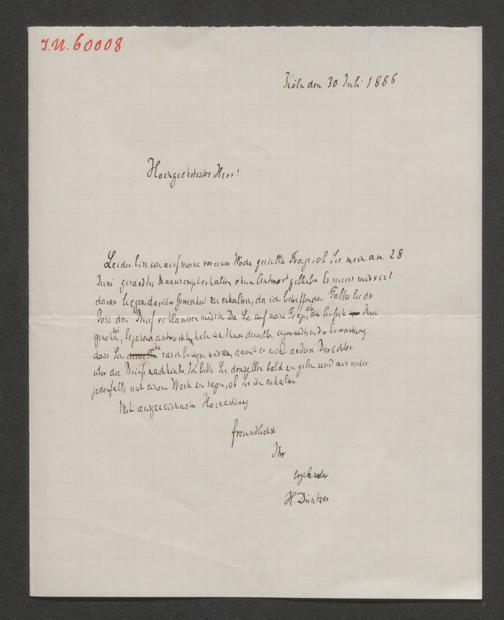 I.N. 60008
Köln den 30 Juli 1886
Hochgeehrtester Herr!
Leider bin ich auf meine vor einer Woche gestellte Frage, ob Sie mein am 28
Juni gesandtes Manuscript erhalten ohne Antwort geblieben. Es muss mir viel
daran liegen darüber Gewissheit zu erhalten, da ich betreffenden Falles bei der
Post den Brief reklamiren müsste. Da Sie auf meine Frage, ob
dass Sie rasch bringen würden, damit er nicht andern Berichten
über die nachhinke. Ich bitte Sie denselben bald zu geben und mir
jedenfalls mit einem Wort zu sagen, ob Sie ihn erhalten
Mit ausgezeichneter Hochachtung
freundlichst
Ihr
ergebenster
H Düntzer